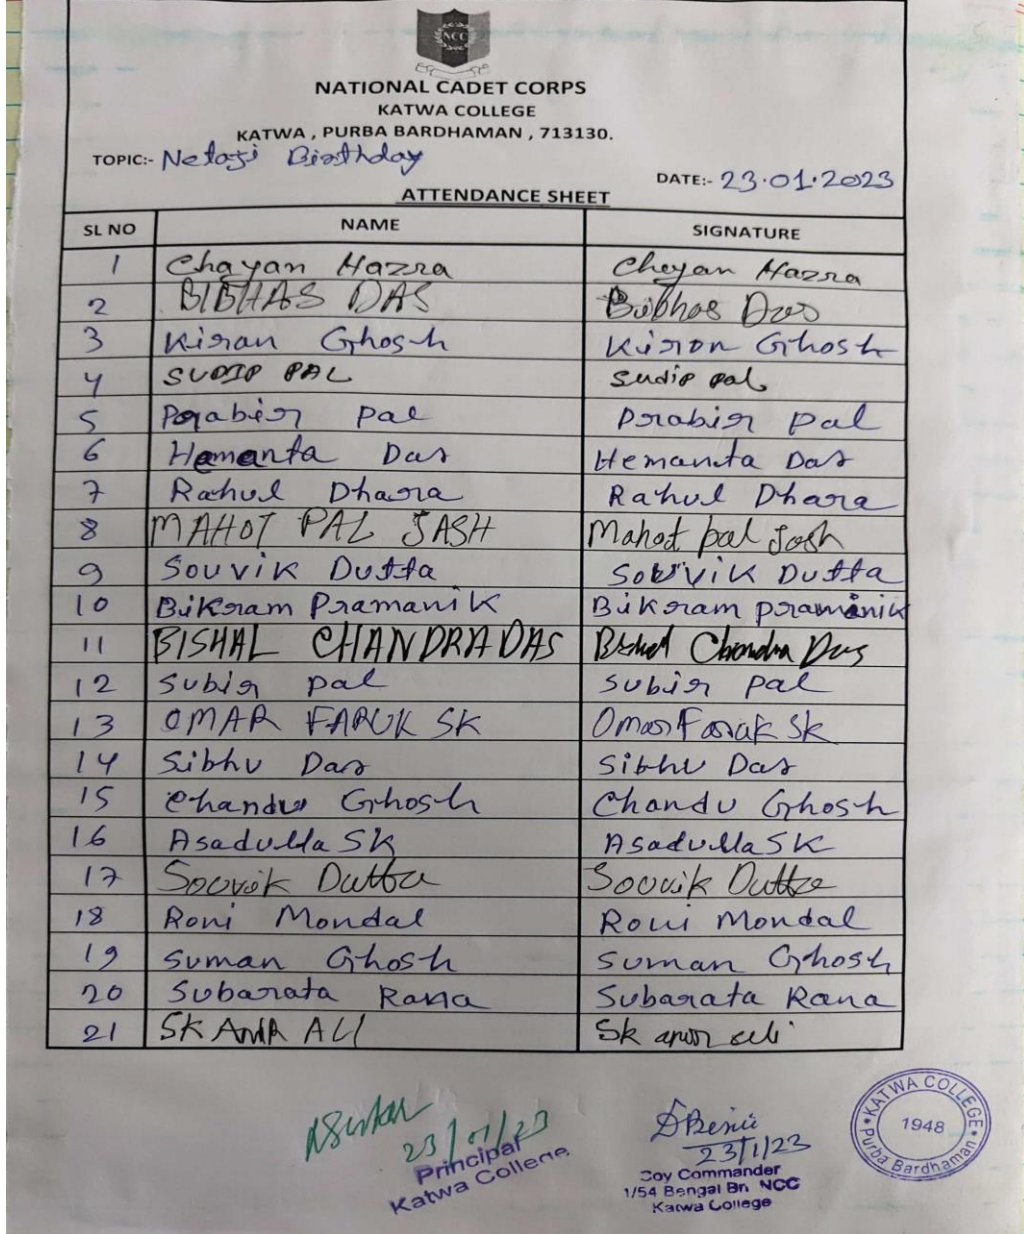 NCC
NATIONAL CADET CORPS
KATWA COLLEGE
KATWA , PURBA BARDHAMAN , 713130.
TOPIC:- Netaji Birthday
DATE:- 23.01.2023
ATTENDANCE SHEET
SL NO NAME SIGNATURE
1 Chayan Hazra Chayan Hazra
2 BIBHAS DAS Bibhas Das
3 Kiran Ghosh Kiran Ghosh
4 SUDIP PAL Sudip pal
5 Prabir pal Prabir pal
6 Hemanta Das Hemanta Das
7 Rahul Dhara Rahul Dhara
8 MAHOT PAL JASH Mahot pal Jash
9 Souvik Dutta Souvik Dutta
10 Bikram Pramanik Bikram pramanik
11 BISHAL CHANDRA DAS Bishal Chandra Das
12 Subir pal Subir pal
13 OMAR FARUK SK Omar Faruk Sk
14 Sibhu Das Sibhu Das
15 Chandu Ghosh Chandu Ghosh
16 Asadulla SK Asadulla SK
17 Souvik Dutta Souvik Dutta
18 Roni Mondal Roni Mondal
19 Suman Ghosh Suman Ghosh
20 Subarata Rana Subarata Rana
21 SK ALI Sk ali
23/01/23
Principal
Katwa College
23/1/23
Coy Commander
1/54 Bengal Bn NCC
Katwa College
KATWA COLLEGE
1948
Purba Bardhaman